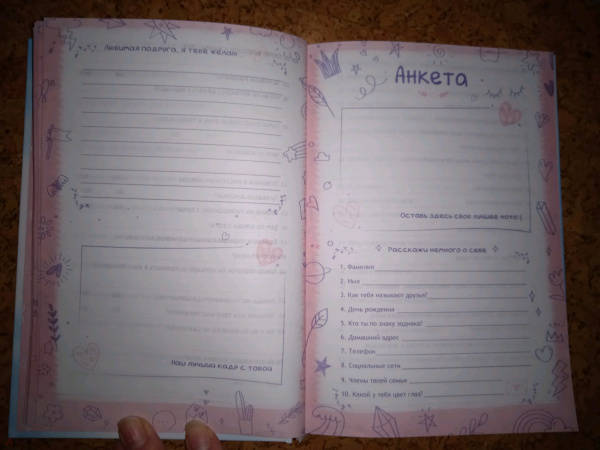 Любимая подруга, я тебе желаю
Наш лучший кадр с тобой
Анкета
Оставь здесь свое лучшее фото:)
Расскажи немного о себе
1. Фамилия
2. Имя
3. Как тебя называют друзья?
4. День рождения
5. Кто ты по знаку зодиака?
6. Домашний адрес
7. Телефон
8. Социальные сети
9. Члены твоей семьи
10. Какой у тебя цвет глаз?